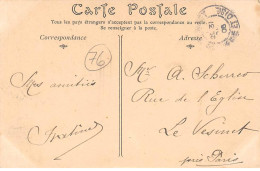 Carte Postale
Tous les pays étrangers n'acceptent pas la correspondance au verso
Se renseigner à la poste
Correspondance
Adresse
76
Mr A. Scherrer
Mes amitiés
Rue de l'Eglise
Le Vesinet
près Paris